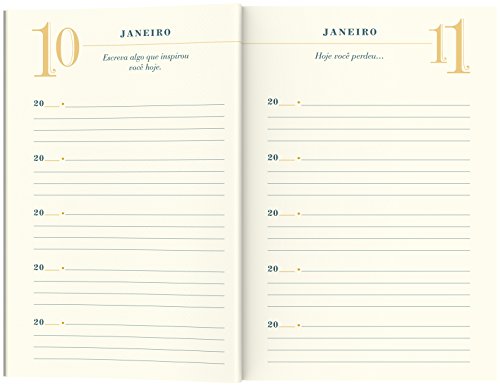 10
JANEIRO
Escreva algo que inspirou
você hoje.
20
20
20
20
20
JANEIRO
11
Hoje você perdeu...
20
20
20
20
20